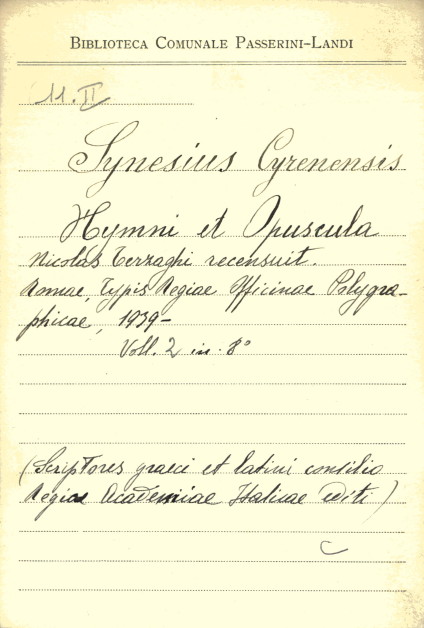 BIBLIOTECA COMUNALE PASSERINI-LANDI
11.II
Synesius Cyrenensis
Hymni et Opuscula
Nicolas Terzaghi recensuit.
Romae, Typis Regiae Officinae Polygra-
phicae, 1939-
Voll. 2 in-8°
(Scriptores graeci et latini consilio
Regiae Academiae Italicae editi)
C